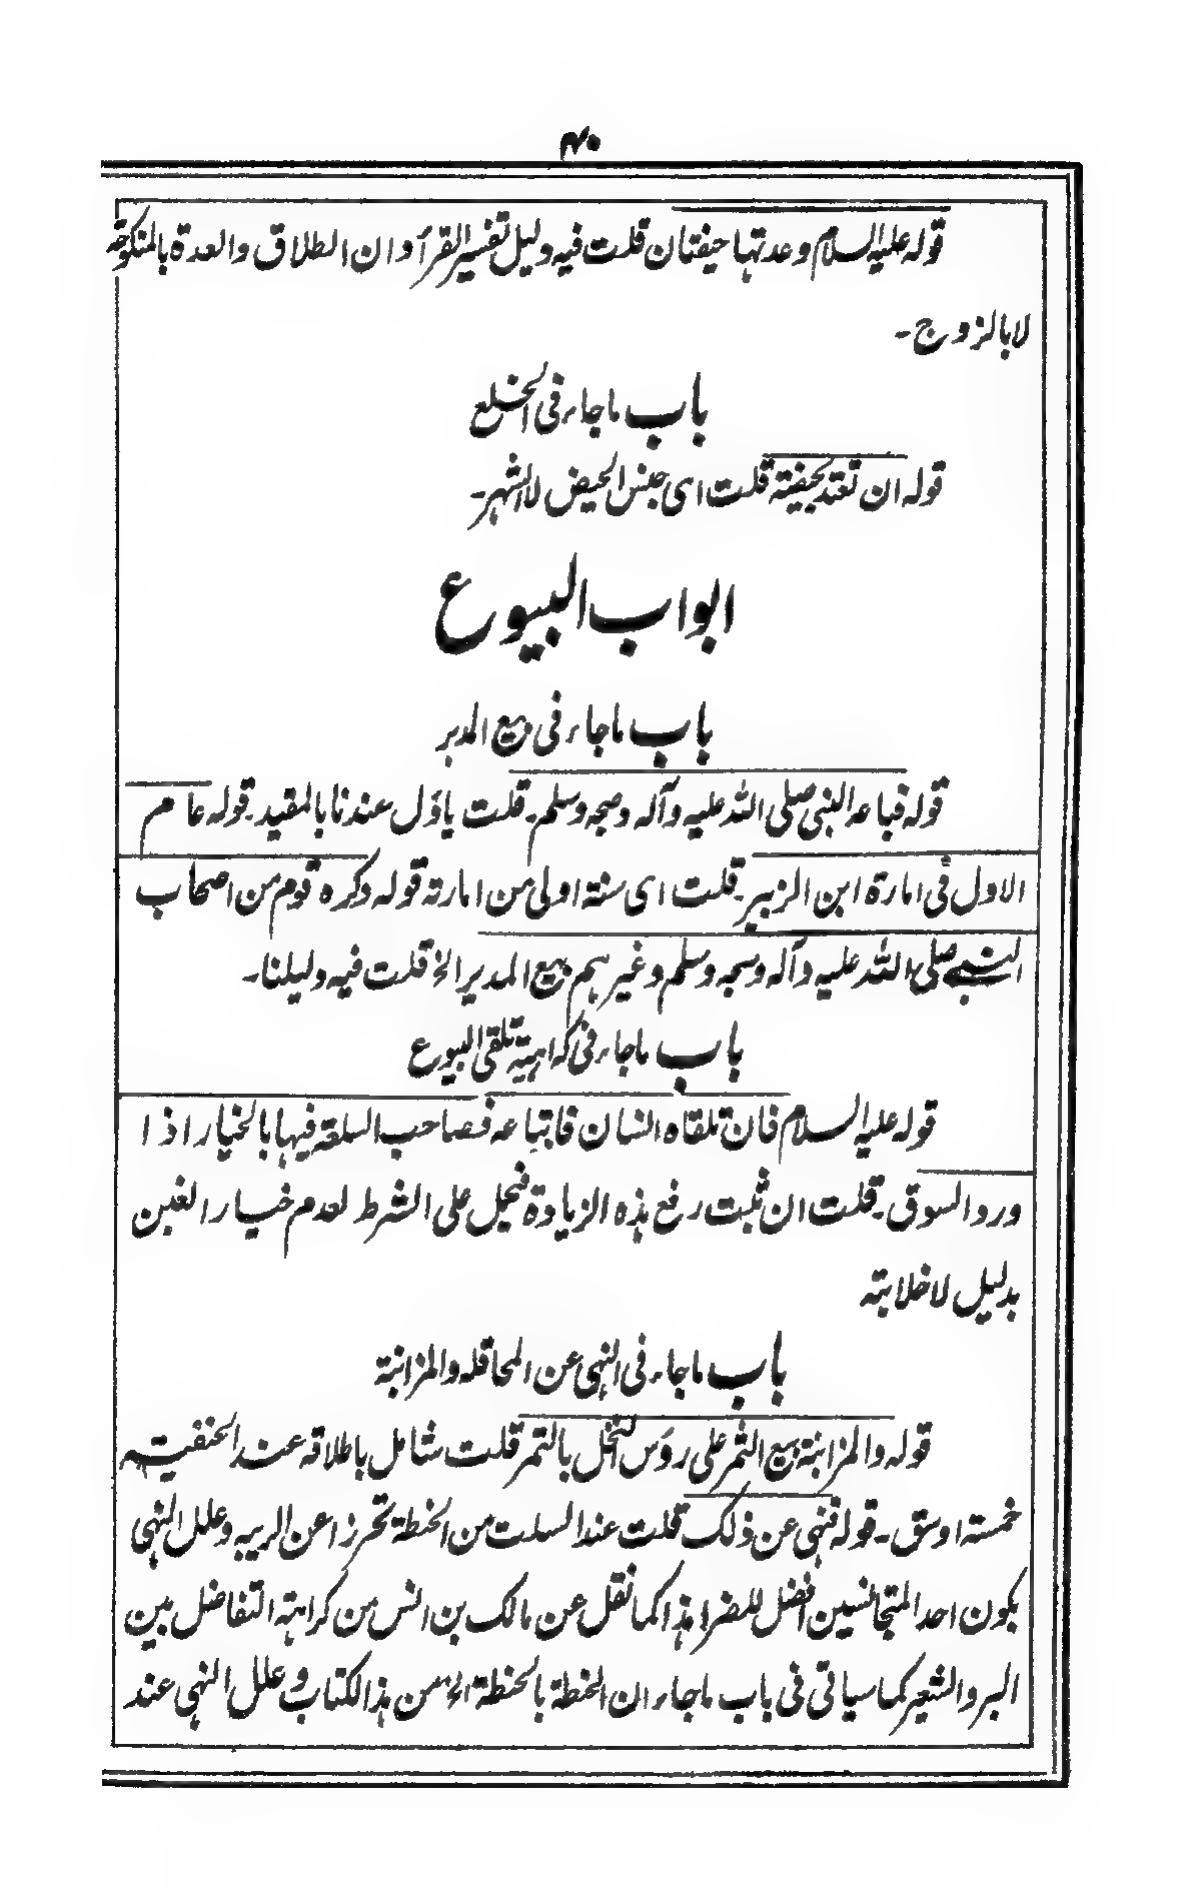 ۴۰
قوله علیه السلام وعدتها حیضتان قلت فیه دلیل تفسیر القرآ وان الطلاق والعدة بالمنکوحة
لا بالزوج۔
باب ماجاء فی الخلع
قوله ان تعتد بحیضة قلت ای جنس الحیض لا الشهر۔
ابواب البیوع
باب ماجاء فی بیع المدبر
قوله فباعه النبی صلی الله علیه وآله وصحبه وسلم۔ قلت یاوّل عندنا بالمقید۔ قوله عام
الاول فی امارة ابن الزبیر۔ قلت ای سنة اولی من امارته قوله وکره قوم من اصحاب
النبی صلی الله علیه وآله وصحبه وسلم وغیرهم بیع المدبر الخ قلت فیه دلیلنا۔
باب ماجاء فی کراهیة تلقی البیوع
قوله علیه السلام فان تلقاه انسان فابتاعه فصاحب السلعة فیها بالخیار اذا
ورد السوق۔ قلت ان ثبت رفع هذه الزیادة فیحمل علی الشرط لعدم خیار الغبن
بدلیل لا خلابة
باب ماجاء فی النهی عن المحاقلة والمزابنة
قوله والمزابنة بیع الثمر علی روس النخل بالتمر قلت شامل باطلاقه عند الحنفیة
خمسة اوسق۔ قوله فنهی عن ذلک قلت عند السلت من الحنطة تحرزا عن الریبه وعلل النهی
بکون احد المتجانسین افضل للضرا هذا کما نقل عن مالک بن انس من کراهة التفاضل بین
البر والشعیر کما سیاتی فی باب ماجاء ان الحنطة بالحنطة الخ من هذا الکتاب وعلل النهی عند